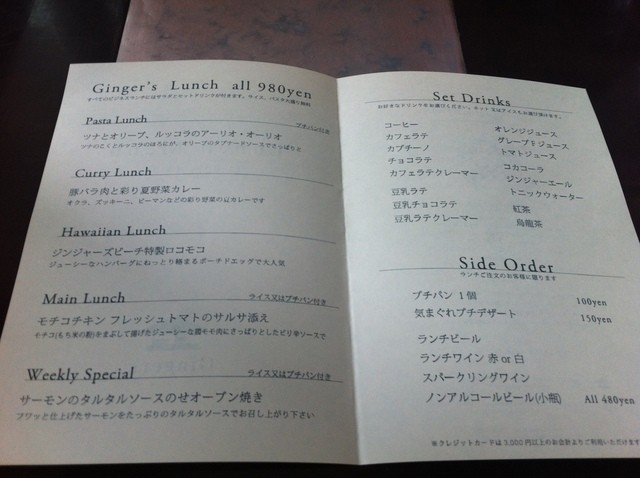 Ginger's Lunch all 980yen
すべてのビジネスランチにはサラダとセットドリンクが付きます。ライス、パスタ大盛り無料
Pasta Lunch プチパン付き
ツナとオリーブ、ルッコラのアーリオ・オーリオ
ツナのこくとルッコラのほろにが、オリーブのタプナードソースでさっぱりと
Curry Lunch
豚バラ肉と彩り夏野菜カレー
オクラ、ズッキーニ、ピーマンなどの彩り野菜の豆カレーです
Hawaiian Lunch
ジンジャーズビーチ特製ロコモコ
ジューシーなハンバーグにねっとり絡まるポーチドエッグで大人気
Main Lunch ライス又はプチパン付き
モチコチキン フレッシュトマトのサルサ添え
モチコ(もち米の粉)をまぶして揚げたジューシーな鶏モモ肉にさっぱりとしたピリ辛ソースで
Weekly Special ライス又はプチパン付き
サーモンのタルタルソースのせオーブン焼き
フワッと仕上げたサーモンをたっぷりのタルタルソースでお召し上がり下さい
Set Drinks
お好きなドリンクをお選びください。ホット又はアイスもお選び頂けます。
コーヒー
カフェラテ
カプチーノ
チョコラテ
カフェラテクレーマー
豆乳ラテ
豆乳チョコラテ
豆乳ラテクレーマー
オレンジジュース
グレープジュース
トマトジュース
コカコーラ
ジンジャーエール
トニックウォーター
紅茶
烏龍茶
Side Order
ランチご注文のお客様に限ります
プチパン 1個 100yen
気まぐれプチデザート 150yen
ランチビール
ランチワイン 赤 or 白
スパークリングワイン
ノンアルコールビール(小瓶) All 480yen
※クレジットカードは3,000円以上のお会計よりご利用いただけます